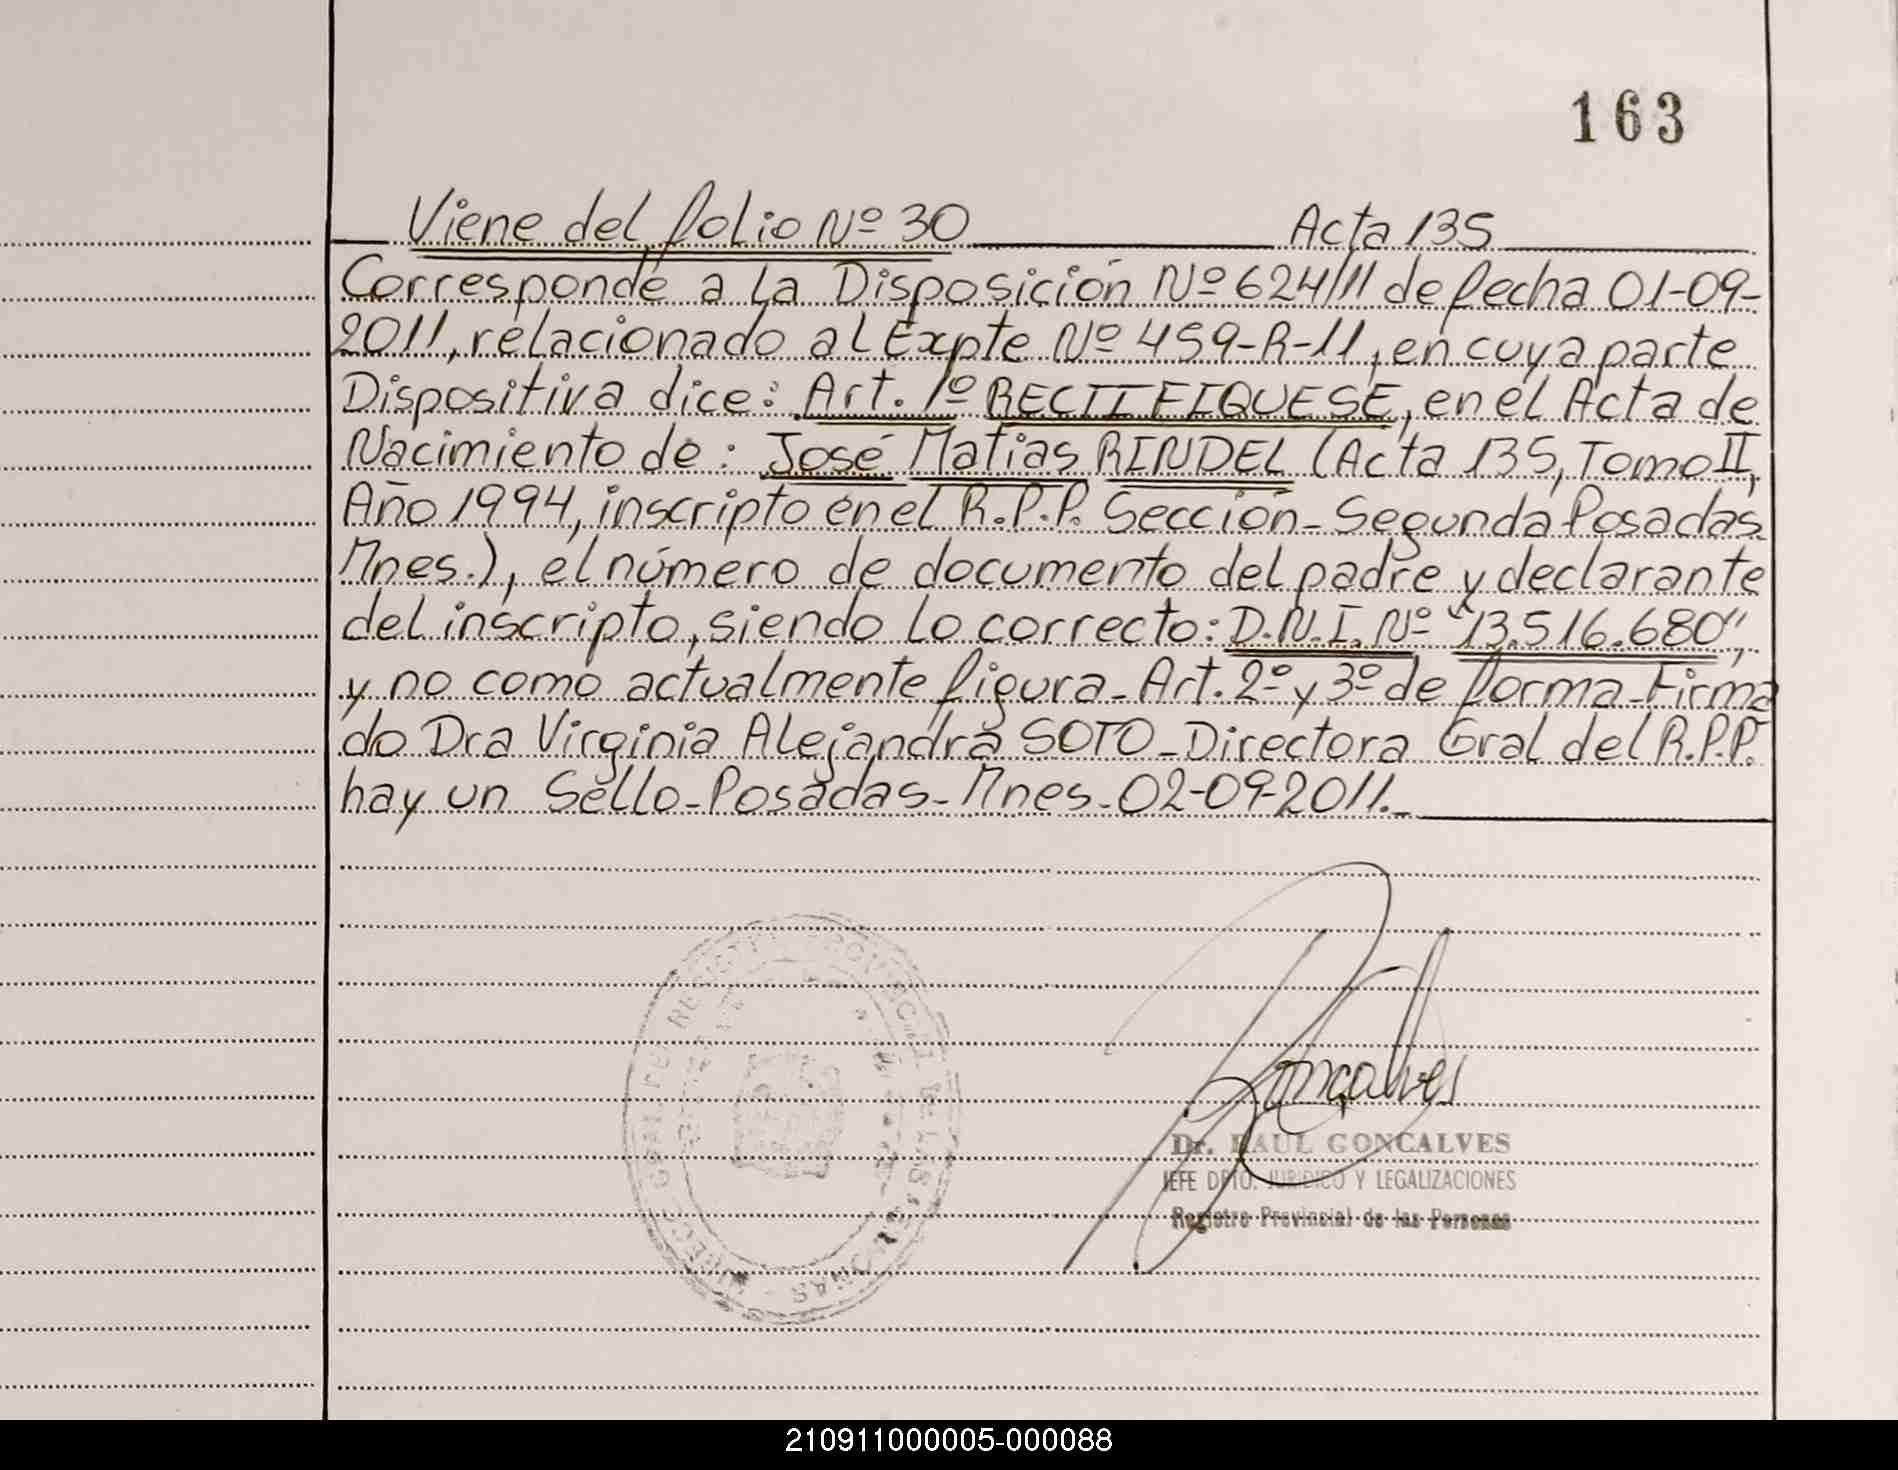 163
Viene del folio Nº 30 Acta 135
Corresponde a la Disposición Nº 624/11 de fecha 01-09-
2011, relacionado al Expte Nº 459-R-11, en cuya parte
Dispositiva dice: Art. 1º RECTIFIQUESE, en el Acta de
Nacimiento de: José Matias RINDEL (Acta 135, Tomo II,
Año 1994, inscripto en el R.P.P. Sección-Segunda Posadas.
Mnes.), el número de documento del padre y declarante
del inscripto, siendo lo correcto: D.N.I. Nº "13.516.680",
y no como actualmente figura-Art. 2º y 3º de forma-Firma
do Dra Virginia Alejandra SOTO-Directora Gral del R.P.P.
hay un Sello-Posadas-Mnes-02-09-2011.-
Goncalves
Dr. RAUL GONCALVES
JEFE DPTO. JURIDICO Y LEGALIZACIONES
Registro Provincial de las Personas
210911000005-000088